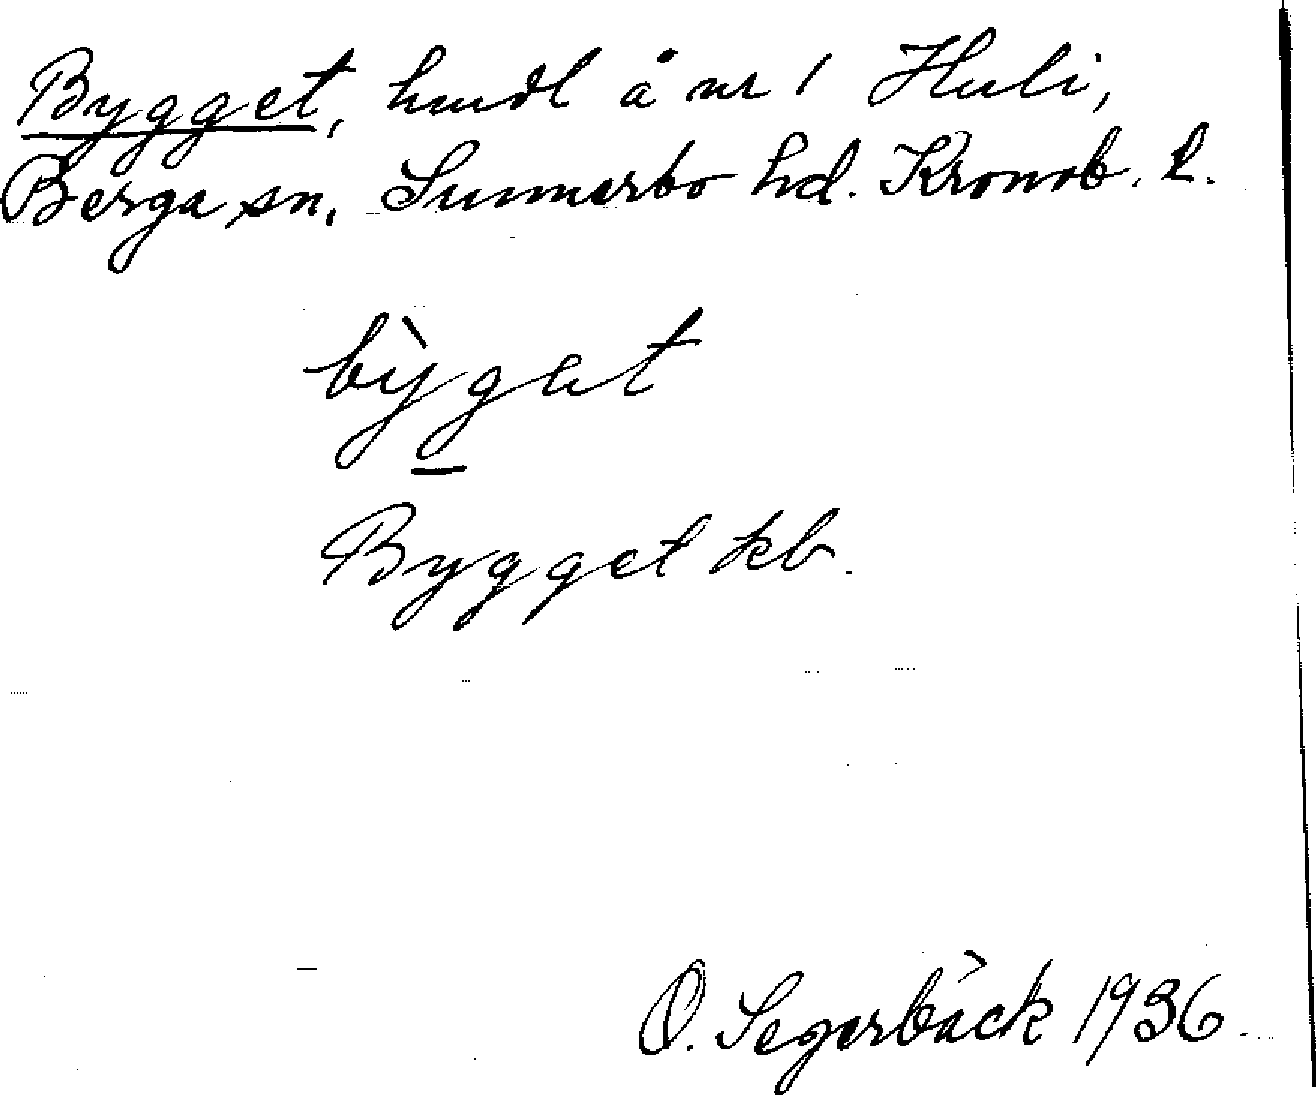 Bygget, hmdl å nr 1 Huli,
Berga sn, Sunnerbo hd. Kronob. l.
bỳget
Bygget kb.
O. Segerbäck 1936